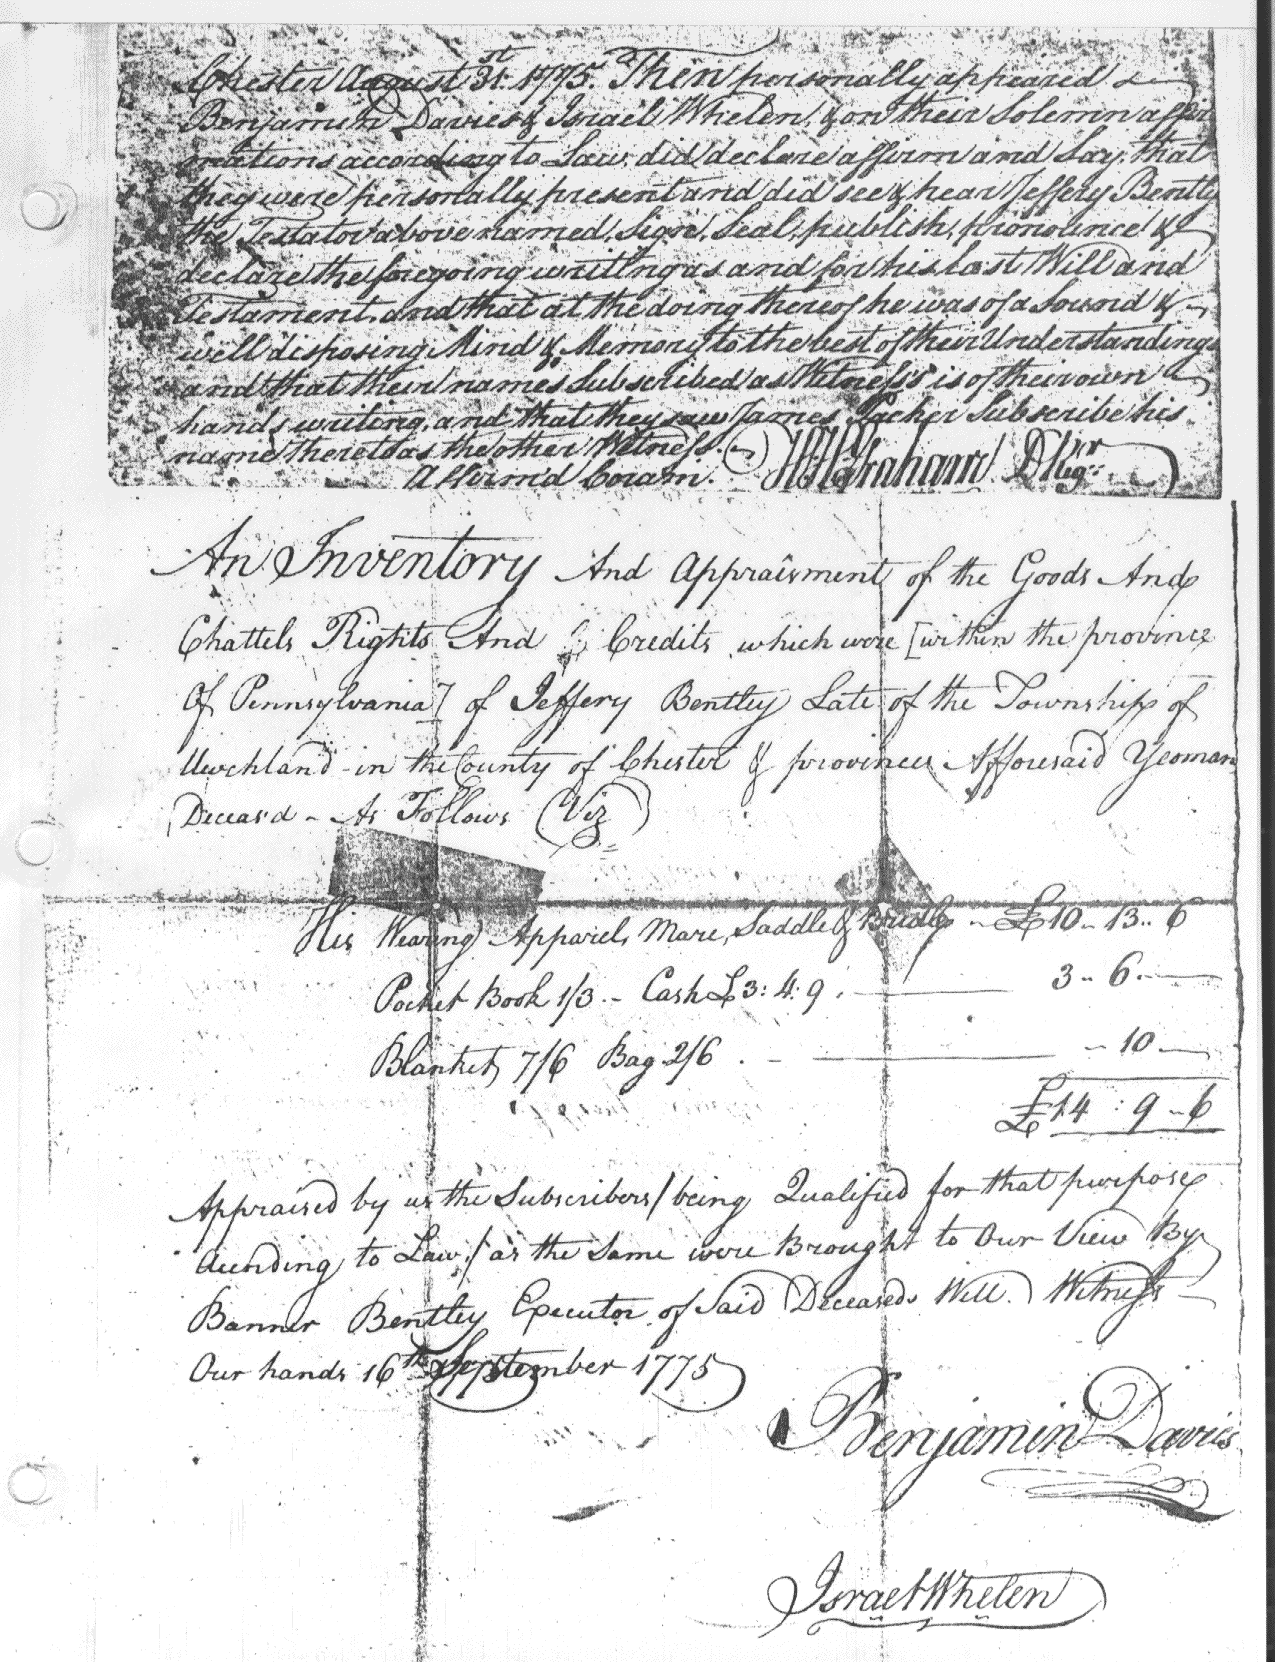 Chester August 31st. 1775. Then personally appeared
Benjamin Davies & Israel Whelen, & on their Solemn affir
mations according to Law, did declare affirm and Say, that
they were personally present and did see & hear Jeffery Bently
the Testator above named, Sign, Seal, publish, pronounce &
declare the foregoing writing as and for his last Will and
Testament, and that at the doing thereof he was of a Sound &
well disposing Mind & Memory to the best of their Understanding
and that their names Subscribed as Witness's is of their own
hands writing, and that they saw James Packer Subscribe his
name thereto as the other Witness.
Affirm'd Coram. Graham DRegr.
An Inventory And Appraisment of the Goods And
Chattels Rights And Credits which were [within the province
Of Pennsylvania] of Jeffery Bentley Late of the Township of
Uwchland in the County of Chester & province Afforesaid Yeoman
Deceas'd - As Follows (Viz)
His Wearing Apparel, Mare, Saddle & Bridle - £10 - 13 .. 6
Pocket Book 1/3 - Cash £3 : 4 : 9 . 3 .. 6 . —
Blanket 7/6 Bag 2/6 . - — - 10 —
£14 : 9 - 6
Appraised by us the Subscribers / being Qualified for that purpose
Acording to Law / as the Same were Brought to Our View By
Banner Bentley Executor of Said Deceaseds Will. Witness
Our hands 16th September 1775
Benjamin Davies
Israel Whelen